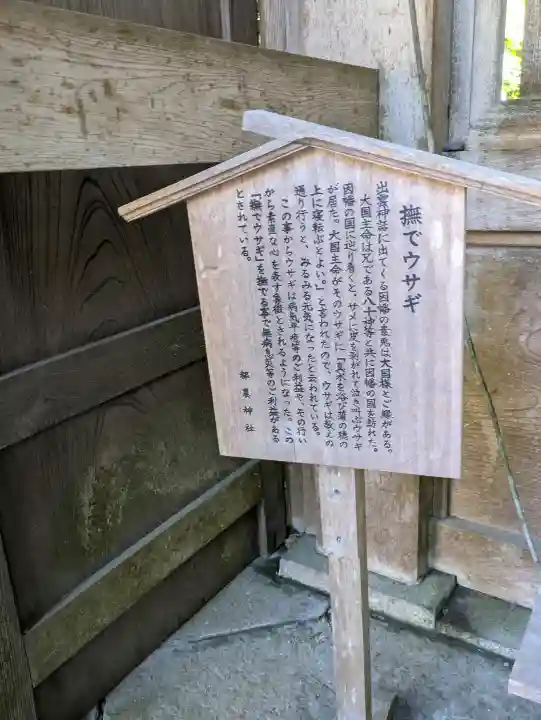 撫でウサギ
出雲神話に出てくる因幡の素兎は大国様とご縁がある。
大国主命は兄である八十神等と共に因幡の国を訪れた。
因幡の国に辿り着くと、サメに皮を剥がれて泣き叫ぶウサギ
が居た。大国主命がそのウサギに「真水を浴び蒲の穂の
上に寝転ぶとよい。」と言われたので、ウサギは教えの
通り行うと、みるみる元気になったと云われている。
この事からウサギは病気平癒等のご利益や、その行い
から素直な心を表す象徴とされるようになった。この
「撫でウサギ」を撫でる事で無病息災等のご利益がある
とされている。
神社